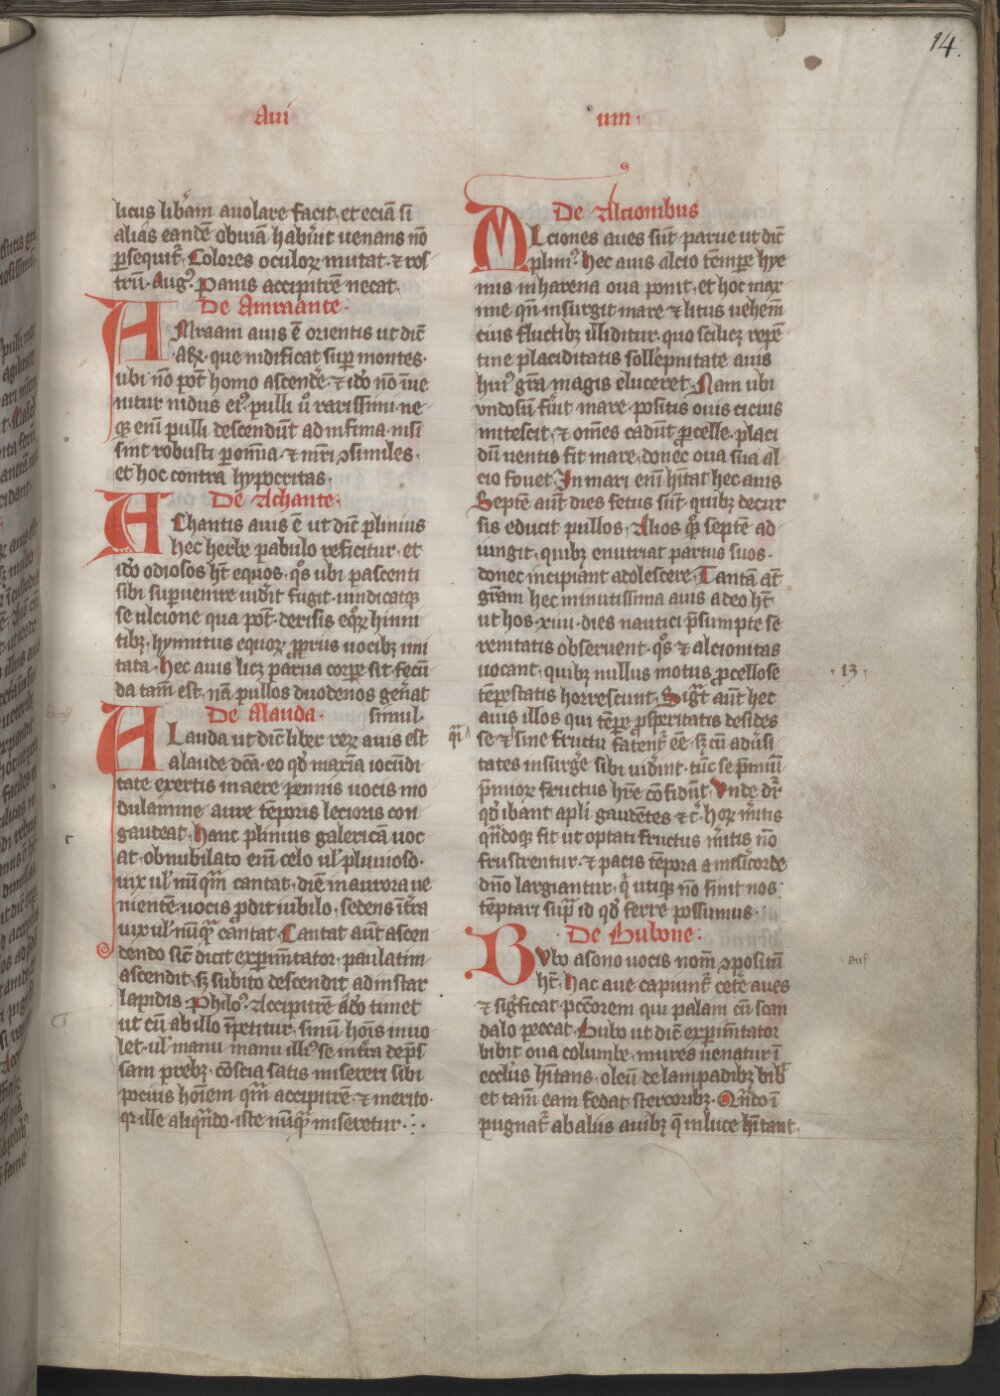 14.
Aui
um
licus lib̄am auolare facit· et eciā si
alias eandē obuiā habūit uenans nō
ꝑsequit᷑· Colores oculoꝝ mutat· ⁊ ros
trū· Augꝰ· ꝑanis accipitrē necat·
De Amraante·
AMraam auis ē orientis ut dic̄
Aꝝ· que nidificat suꝑ montes·
ubi nō pōt homo ascendē· ⁊ ido nō īue
nitur nidus eiꝰ· pulli ū rarissimi ne
qꝫ eni pulli descendūt ad infima· nisi
sint robusti
et hoc contra hypocritas·
De Achante·
AChantis auis ē ut dic̄ plinius
hec herbe pabulo reficitur· et
ido odiosos hn̄t equos· q̄s ubi pascenti
sibi superuenire uidēt fugit· uindicatqꝫ
se ulcione qua pōt· derisis eqꝝ hinni
tibꝫ· hynnitus equoꝝ ꝓpriis uocibꝫ imi
tata· hec auis licꝫ parua corꝑe sit· fecū
da tam̄ est· nā pullos duodenos gen̄at
De Alauda· simul·
ALauda ut dic̄ liber reꝝ auis est
alaude dc̄a· eo qd̄ maxīa iocūdi
tate exertis in aere pennis uocis mo
dulamine aure tēporis lecioris con
gaudeat· hanc plinius galericā uoc
at· obnubilato eni celo ul̄ pluuioso·
uix ul̄ nūqm̄ cantat· diē in aurora ue
nientē uocis ꝓdit iubilo· sedens īt̄ra
uix ul̄ nūqm̄ cantat· Cantat aūt ascen
dendo sic̄ dicit exꝑimētator· paulatim
ascendit· sꝫ subito descendit ad instar
lapidis· Philoꝰ· Accipitrē ado timet
ut cū ab illo īpetitur· sinū hoīs inuo
let· ul̄ manu manu illiꝰ se intra dep̄s
sam prebꝫ· cōscia satis misereri sibi
pocius hoīem qm̄ accipitrē· ⁊ merito·
qꝛ ille aliqn̄do· iste nūqm̄ miseretur·
De Alcionibus
ALciones aues sūt parue ut dic̄
pliniꝰ· hec auis alcio tēmpe hye
mis in harena oua ponit· et hoc max
ime qn̄ insurgit mare ⁊ litus uehemēt
cius fluctibꝫ illiditur· quo scilicꝫ repē
tine placiditatis sollempnitate auis
huiꝰ gr̄a magis eluceret· Nam ubi
vndosū fūit mare· positis ouis cicius
mitescit· ⁊ om̄es cadūt ꝓcelle· placi
dū uentis fit mare· donec oua sua al
cio fouet· In mari eni hītat hec auis
Septē aūt dies fetus sūt· quibꝫ decur
sis educit pullos· Alios qꝫ septē ad
iungit· quibꝫ enutriat partus suos·
donec incipiant adolescere· Tantā at̄
gr̄am hec minutissima auis a deo hꝫ
ut hos· xiiii· dies nautici p̄sumpte se
renitatis obseruent· q̄s ⁊ alcionitas
uocant· quibꝫ nullus motus ꝓcellose
tēpestatis horrescunt· Sigꝫt aūt hec
auis illos qui tēpe ꝓsꝑeritatis desides
se ⁊ sine fructu fatent᷑ eē· sꝫ cū adūsi
tates insurgē sibi uidēnt· tūc se p̄miū
p̄mioꝝ fructus hr̄e cōfidūt· Vnde dr̄
qd̄ ibant apl̄i gaudētes ⁊ c̄· hoꝝ mītis
qn̄doqꝫ fit ut optati fructus mītis nō
frustrentur· ⁊ pacis tēpora a misīcorde
dn̄o largiantur· q̄ utiqꝫ nō sinit nos
tēptari sup̄ id qd̄ ferre possumus·
De Bubone:
BVbo a sono uocis nom̄ ꝯpositū
hꝫ· hac aue capiunt᷑ cetē aues
⁊ sigꝫficat pcc̄orem qui palam cū scan
dalo peccat· Bubo ut dic̄ exꝑimētator
bibit oua columbe· mures uenatur ī
eccl̄iis hītans· oleū de lampadibꝫ bib̄
et tam̄ eam fedat stercoribꝫ· Qn̄do ī
pugnat᷑ ab aliis auibꝫ q̄ in luce hītant
13